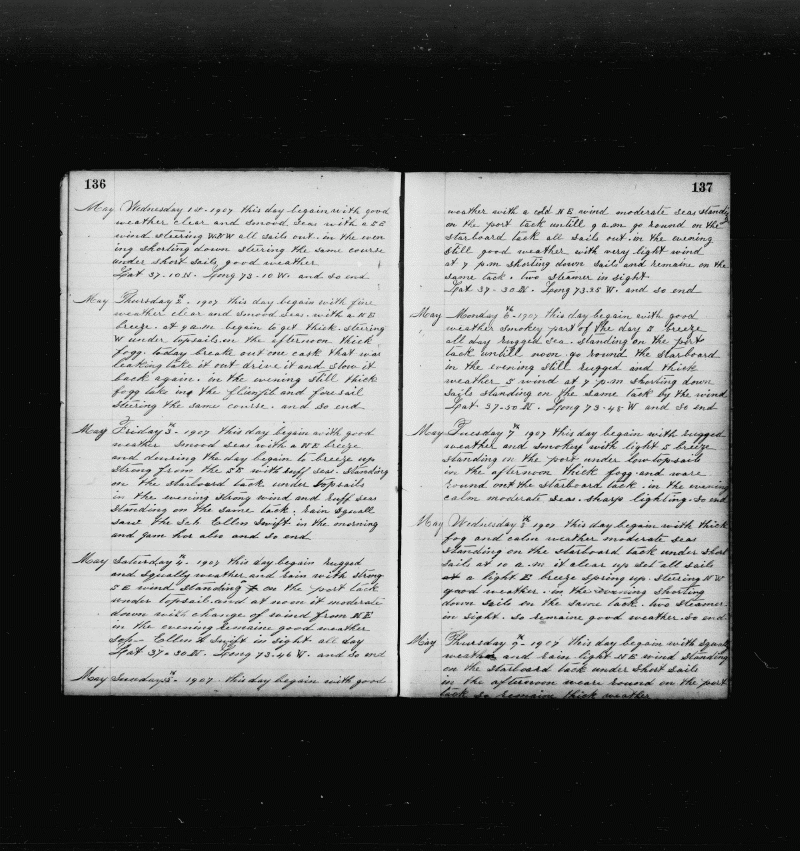 136
May Wednesday 1st. 1907 this day begain with good
weather clear and smood seas with a SE
wind steering WNW all sails out. in the even
ing shorting down steering the same course
under short sails good weather
Lat 37-10 N. Long 73-10 W. and so end
May Thursday 2th. 1907 this day begain with fine
weather clear and smood seas. with a NE
breeze. at 9 a.m. begain to get thick. steering
W under topsails. in the afternon thick
fogg. today breake out one cask that was
leaking take it out drive it and slow it
back again. in the evening still thick
fogg take ing the and foresail
steering the same course. and so end
May Friday 3th. 1907 this day begain with good
weather smood seas with a NE breeze
and douring the day begain to breeze up
strong from the SE with ruff seas. standing
on the starboard tack under topsails
in the evening strong wind and ruff seas
standing on the same tack. rain squall
saw the Sch Ellen Swift in the morning
and gam her also and so end
May Saturday 4th. 1907 this day begain rugged
and squally weather and rain with strong
SE wind standing on the port tack
under topsail. and at noon it moderate
down with change of wind from NE
in the evening remaine good weather
Ellen Swift in sight all day
Lat 37-30 N. Long 73-46 W. and so end
May Sunday 5th. 1907. this day begain with good
137
weather with a cold NE wind moderate seas standg
on the port tack untill 9 a.m. go round on the
starboard tack all sails out in the evening
still good weather with very light wind
at 7 p.m shorting down sails and remaine on the
same tack. two steamer in sight
Lat 37-30 N. Long 73.35 W. and so end
May Monday 6th. 1907 this day begain with good
weather smokey part of the day S breeze
all day rugged sea. standing on the port
tack untill noon go round the starboard
in the evening still rugged and thick
weather S wind at 7 p.m shorting down
sails standing on the same tack by the wind
Lat. 37-30 N. Long 73-45 W and so end
May Tuesday 7th 1907 this day begain with rugged
weather and smokey with light S breeze
standing in the port under lowtopsails
in the afternoon thick fogg and ware
round ont the starboard tack. in the evening
calm moderate seas. sharp lighting. so end
May Wednesday 8th 1907 this day begain with thick
fog and calm weather moderate seas
standing on the starboard tack under short
sails at 10 a.m it clear up set all sails
at a light E breeze spring up. steering NW
good weather. in the evening shorting
down sails on the same tack. two steamer
in sight. so remaine good weather. so end
May Thursday 9th. 1907 this day begain with squaly
weather and rain light NE wind standing
on the starboard tack under short sails
in the afternoon weare round on the port
tack so remain thick weather